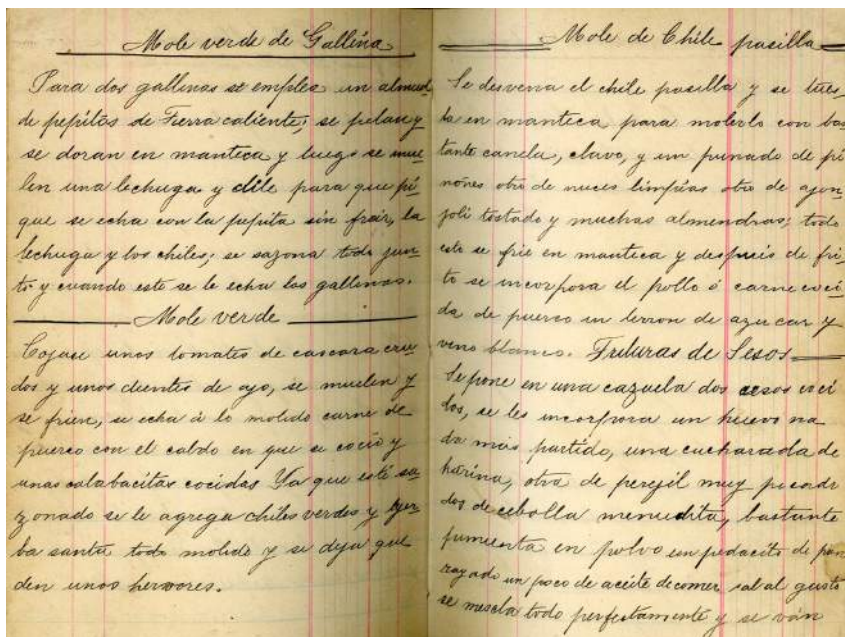 Mole verde de Gallina
Para dos gallinas se emplea un almud
de pepitas de Tierra caliente; se pelan y
se doran en manteca y luego se mue-
len una lechuga y dile para que pi-
que se echa con la pepita sin freir, la
lechuga y los chiles; se sazona todo jun-
to y cuando este se le echa las gallinas.
Mole verde
Cojase unos tomates de cascara cru-
dos y unos dientes de ajo, se muelen y
se frien, se echa á lo molido carne de
puerco con el caldo en que se coció y
unas calabacitas cocidas Ya que esté sa-
zonado se le agrega chiles verdes y yer-
ba santa todo molido y se deja que
den unos hervores.
Mole de Chile pasilla
Se desvena el chile pasilla y se tues-
ta en manteca para molerlo con bas-
tante canela, clavo, y un punado de pi-
ñones otro de nueces limpias otro de ajon-
joli tostado y muchas almendras; todo
esto se frie en manteca y después de fri-
to se incorpora el pollo ó carne coci-
da de puerco un terron de azucar y
vino blanco. Frituras de Sesos
Se pone en una cazuela dos sesos coci
dos, se les incorpora un huevo na
da más partido, una cucharada de
harina, otra de perejil muy picado
dos de cebolla menudita, bastante
pumienta en polvo un pedacito de pan
rayado un poco de aceite de comer sal al gusto
se mescla todo perfectamente y se ván